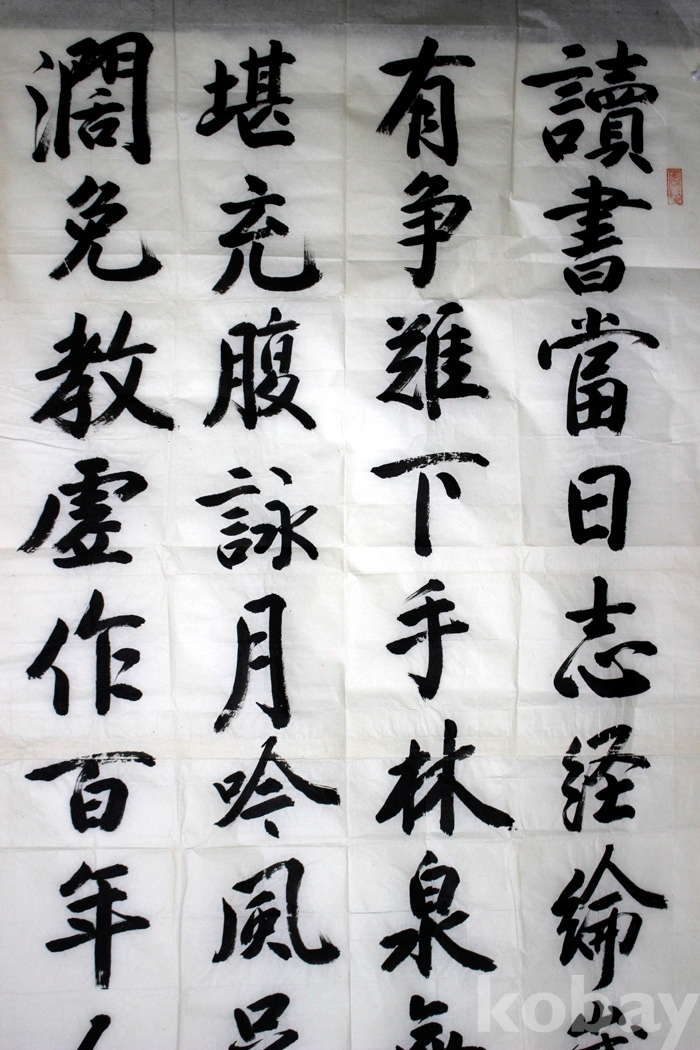 讀書當日志経綸
有争難下手林泉
堪充腹詠月吟風
濶免教虛作百年
kobay